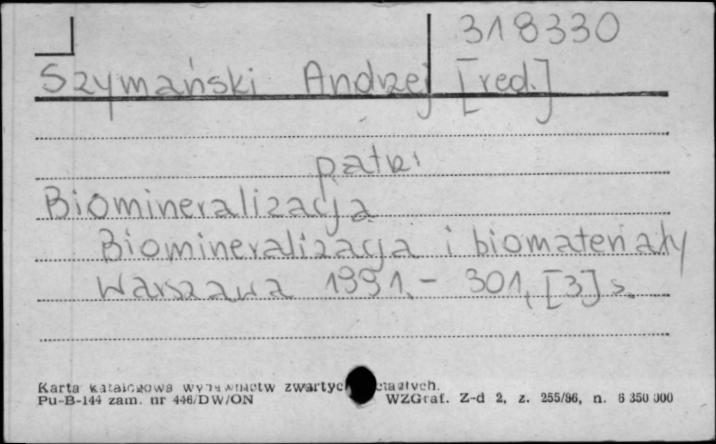 318330
Szymański Andrzej [red.]
patrz
Biomineralizacja
Biomineralizacja i biomateriały
Warszawa 1991.- 301, [3] s.
Karta katalogowa wydawnictw zwartych
Pu-B-144 zam. nr 446/DW/ON WZGraf. Z-d 2, z. 255/86, n. 6 350 000